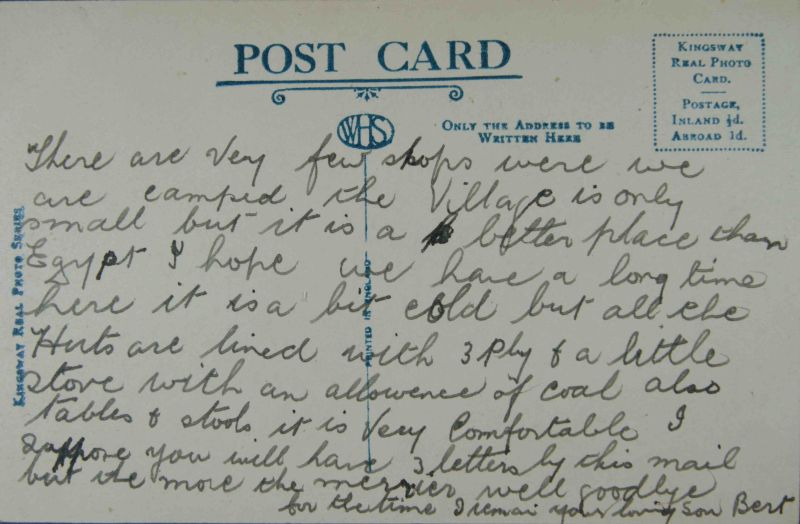 POST CARD
KINGSWAY
REAL PHOTO
CARD.
POSTAGE,
INLAND ½d.
ABROAD 1d.
WHS
ONLY THE ADDRESS TO BE
WRITTEN HERE
KINGSWAY REAL PHOTO SERIES
PRINTED IN ENGLAND
There are Very few shops were we
are camped the Village is only
small but it is a better place than
Egypt I hope we have a long time
here it is a bit cold but all the
Huts are lined with 3 Ply & a little
stove with an allowence of coal also
tables & stools it is Very Comfortable I
suppose you will have 3 letters by this mail
but the more the merrier well goodbye
for the time I remain your loving Son Bert